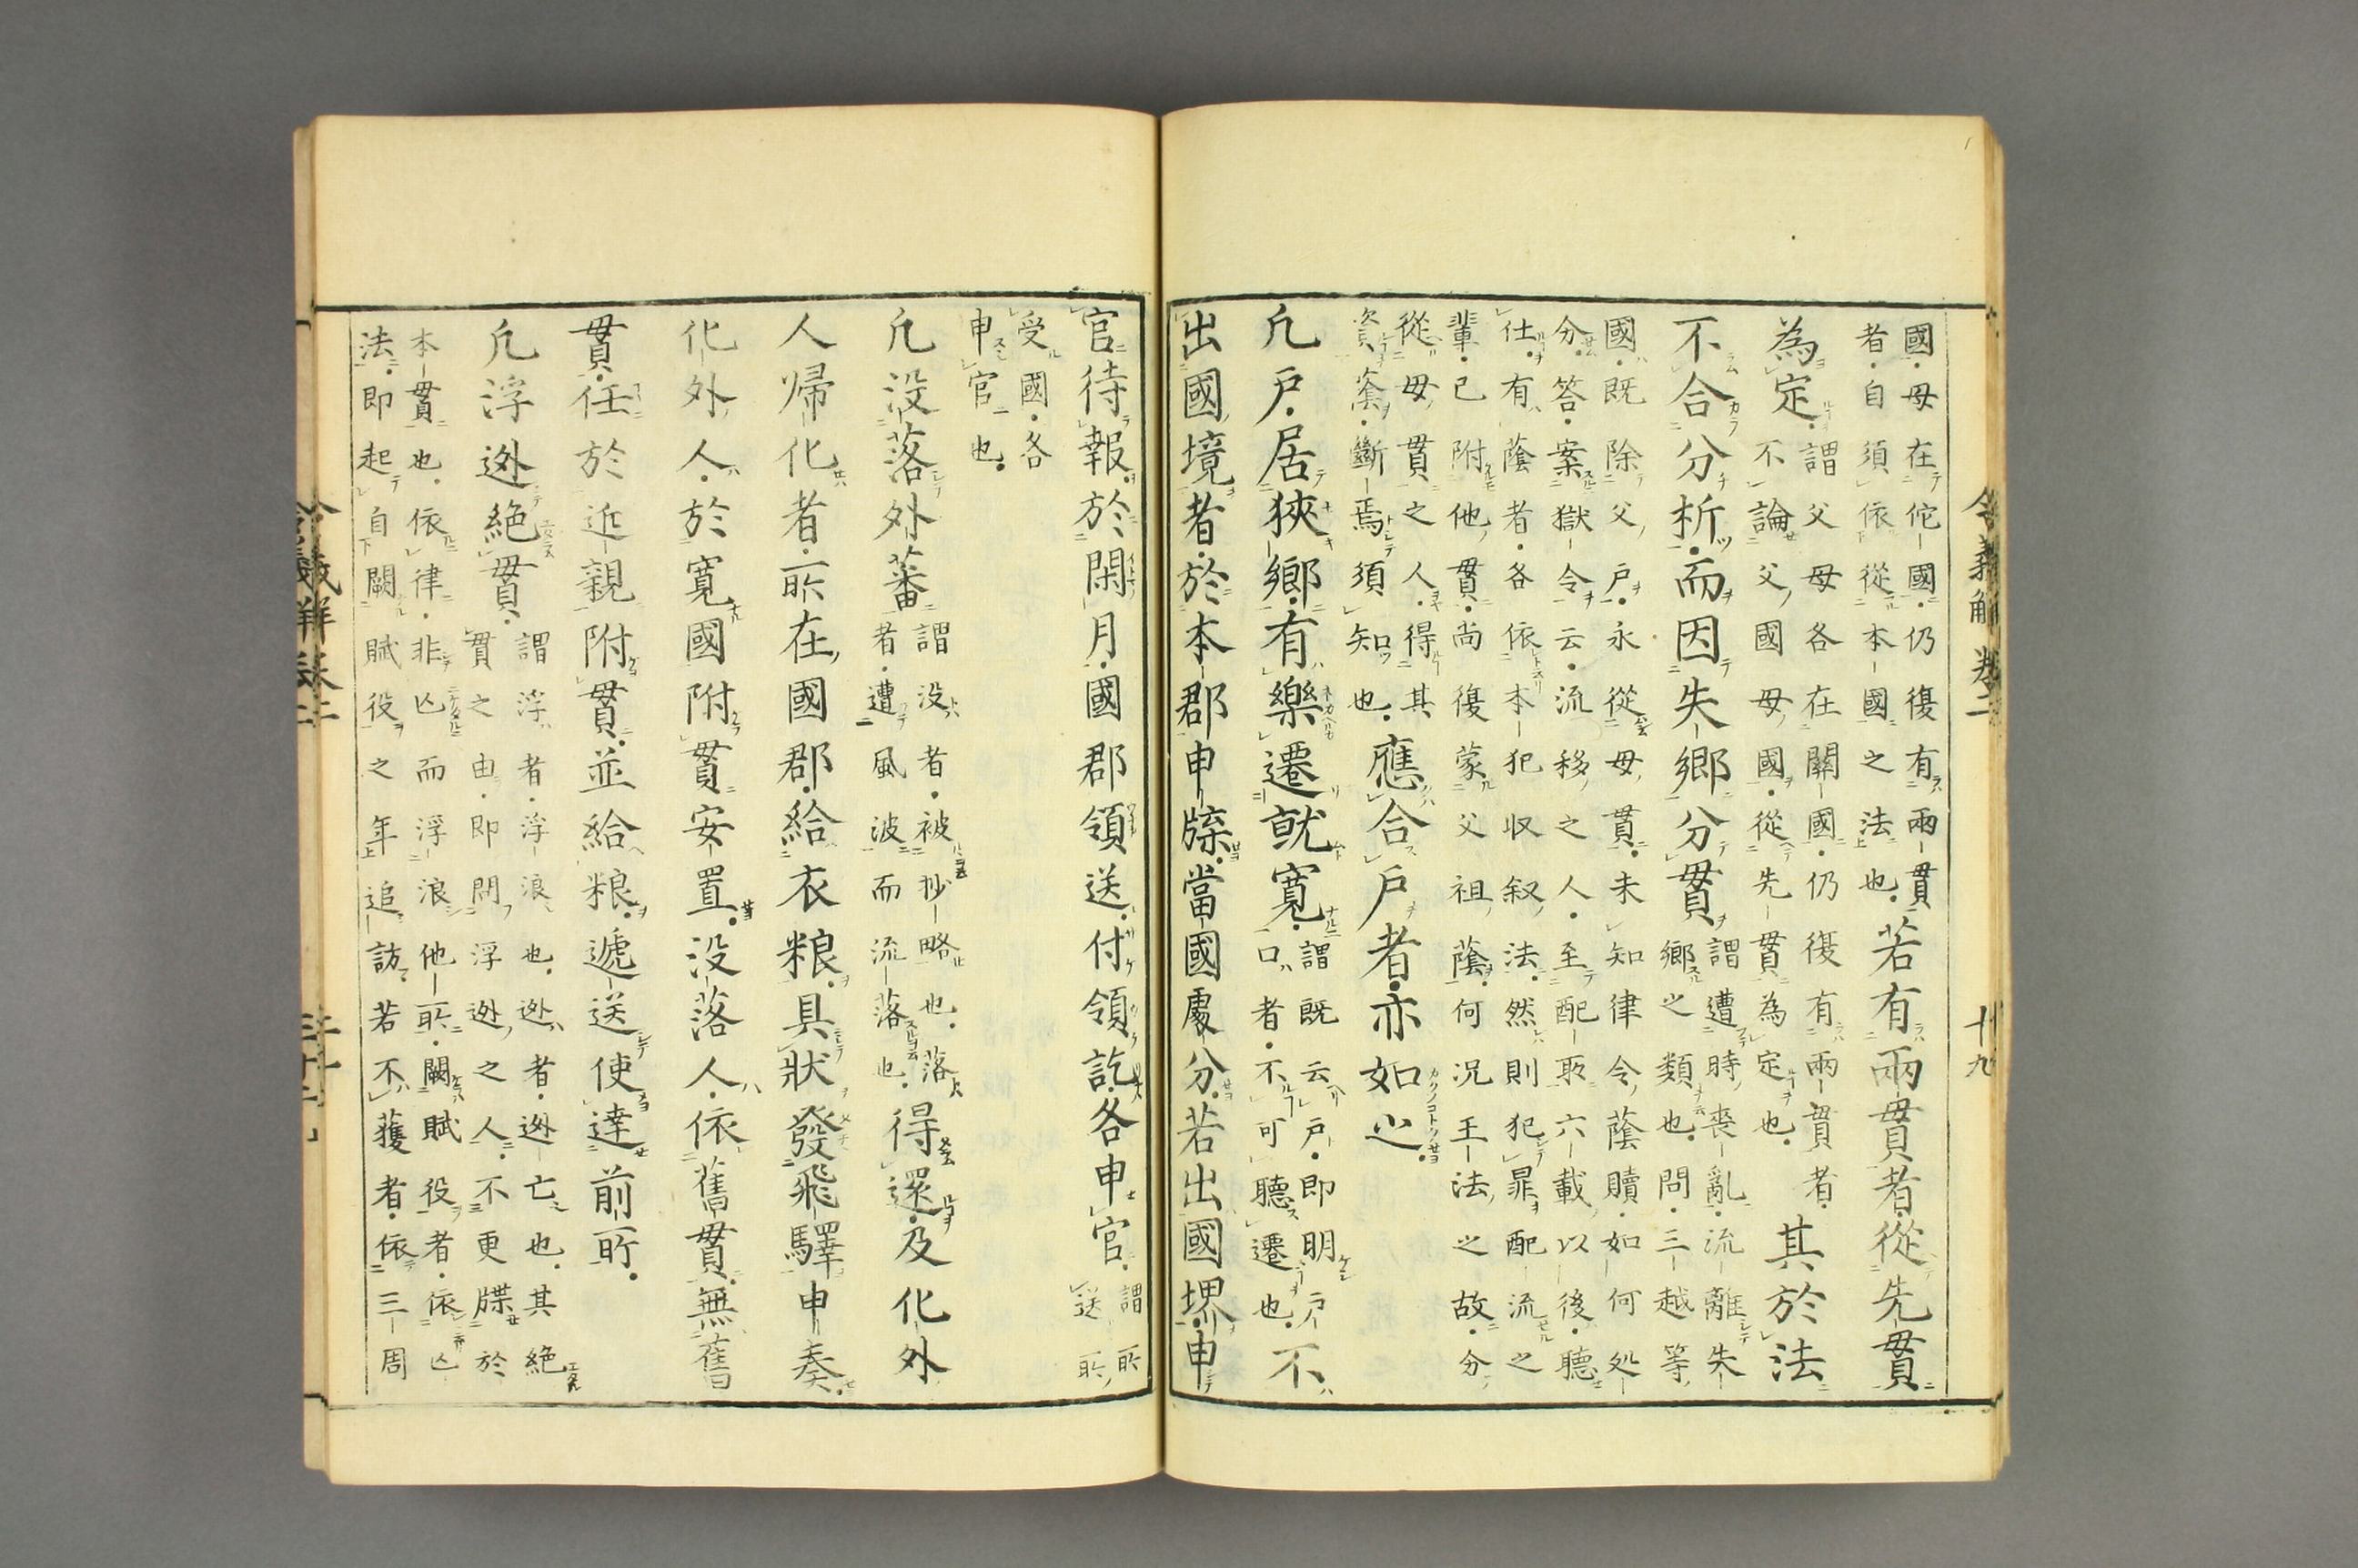 令義解 巻二 十九
國母在佗國仍復有兩貫
者自須依從本國之法也
若有兩貫者從先貫
為定
謂父母各在關國仍復有兩貫者
不論父國母國從先貫為定也
其於法
不合分析而因失郷分貫
謂遭時喪亂流離失
郷之類也問三越等
國既除父戸永從母貫未知律令蔭贖如何処
分答案獄令云流移之人至配所六載以後聽
仕有蔭者各依本犯収叙法然則犯罪配流之
輩已附他貫尚復蒙父祖蔭何況王法之故分
從母貫之人得其
資蔭斷焉須知也
應合戸者亦如之
凢戸居狹郷有樂遷就寛
謂既云戸即明戸
口者不可聽遷也
不
出國境者於本郡申牒當國處分若出國堺申
官待報於閑月國郡領送付領訖各申官
謂所
送所
受國各
申官也
凢没落外蕃
謂没者被抄略也落
者遭風波而流落也
得還及化外
人帰化者所在國郡給衣粮具狀發飛驛申奏
化外人於寛國附貫安置没落人依舊貫無舊
貫任於近親附貫並給粮遞送使達前所
凢浮逃絶貫
謂浮者浮浪也逃者逃亡也其絶
貫之由即問浮逃之人不更牒於
本貫也依律非亡而浮浪他所闕賦役者依亡
法即起自闕賦役之年追訪若不獲者依三周